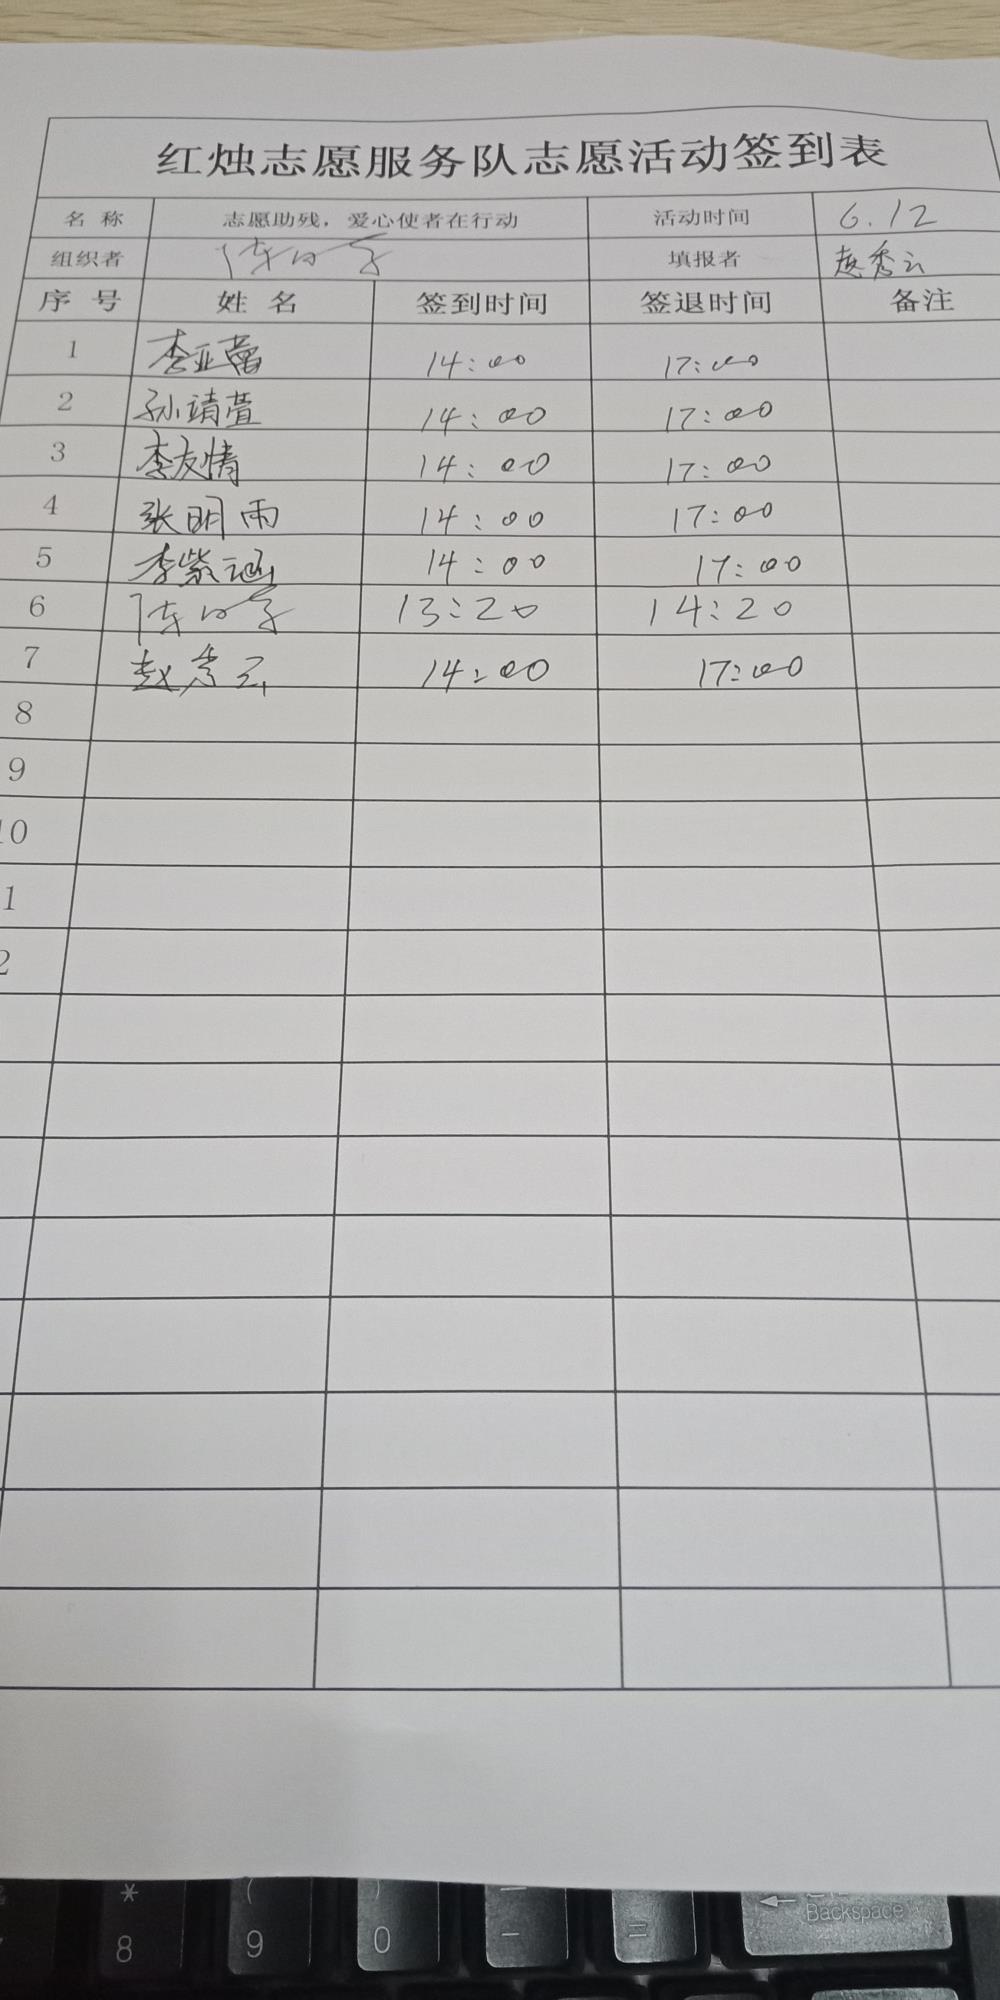 红烛志愿服务队志愿活动签到表
名 称 志愿助残，爱心使者在行动 活动时间 6.12
组织者 填报者 赵秀云
序 号 姓 名 签到时间 签退时间 备注
1 李亚蕾 14:00 17:00
2 孙靖萱 14:00 17:00
3 李友情 14:00 17:00
4 张明雨 14:00 17:00
5 李紫涵 14:00 17:00
6 13:20 14:20
7 赵秀云 14:00 17:00
8
9
10
1
2
* ( ) — Backspace
8 9 0 - =